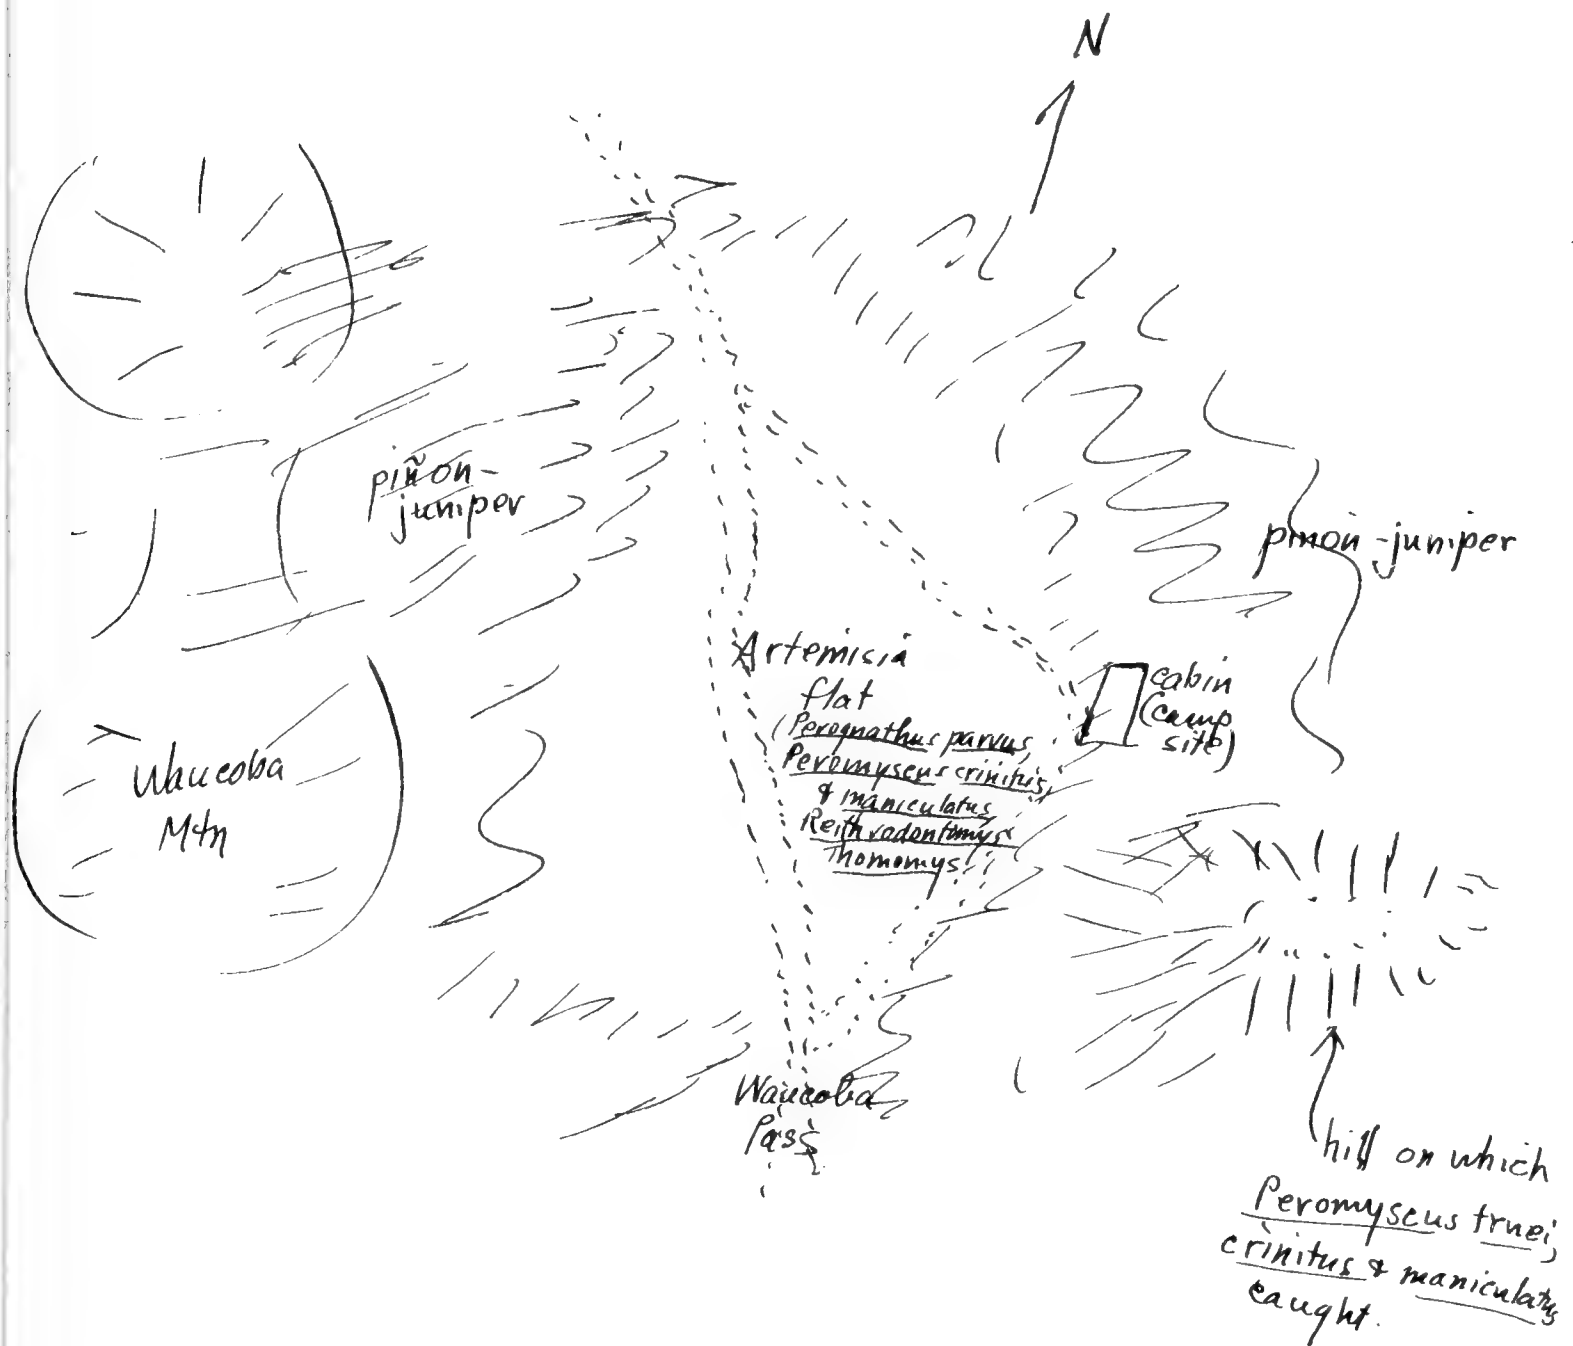 N
piñon-
juniper
pinon-juniper
Artemisia
flat
(Perognathus parvus,
Peromyscus crinitus,
& maniculatus
Reithrodontomys
Thomomys)
cabin
(camp
site)
Waucoba
Mtn
Waucoba
Pass
hill on which
Peromyscus truei,
crinitus & maniculatus
caught.